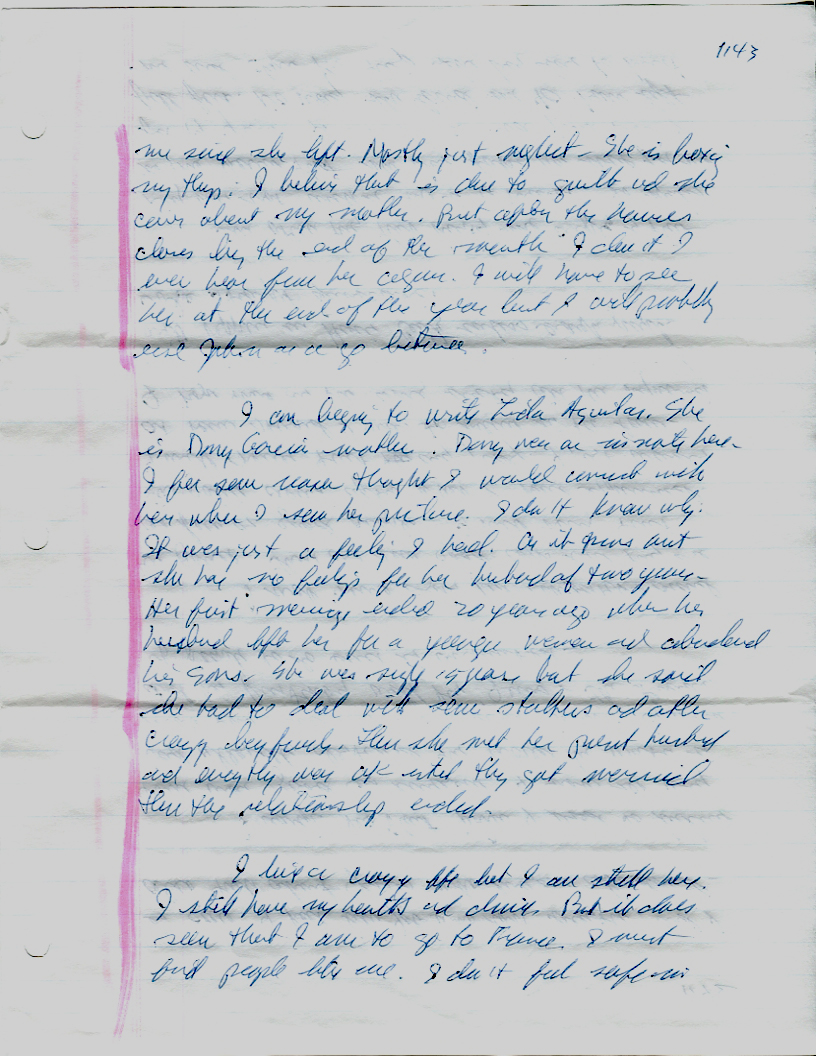 1143
me since she left. Mostly just neglect. She is boxing
my things. I believe that is due to guilt and she
cares about my mother. But after the house
closes by the end of the month I doubt I
ever hear from her again. I will have to see
her at the end of the year but I will probably
use as a go between.
I am begining to write Lida Aguilar. She
is Dony Garcia mother. Dony was an inmate here.
I for some reason thought I would connect with
her when I seen her picture. I don't know why.
It was just a feeling I had. As it turns out
she has no feelings for her husband of two years.
Her first marriage ended 20 years ago when her
husband left her for a younger woman and abandoned
his sons. She was single years but she said
she had to deal with some stalkers and other
crazy boyfriends. Then she met her present husband
and everything was ok until they got married
then the relationship ended.
I live a crazy life but I am still here.
I still have my health and But it does
seem that I am to go to France. I must
find people like me. I don't feel safe in